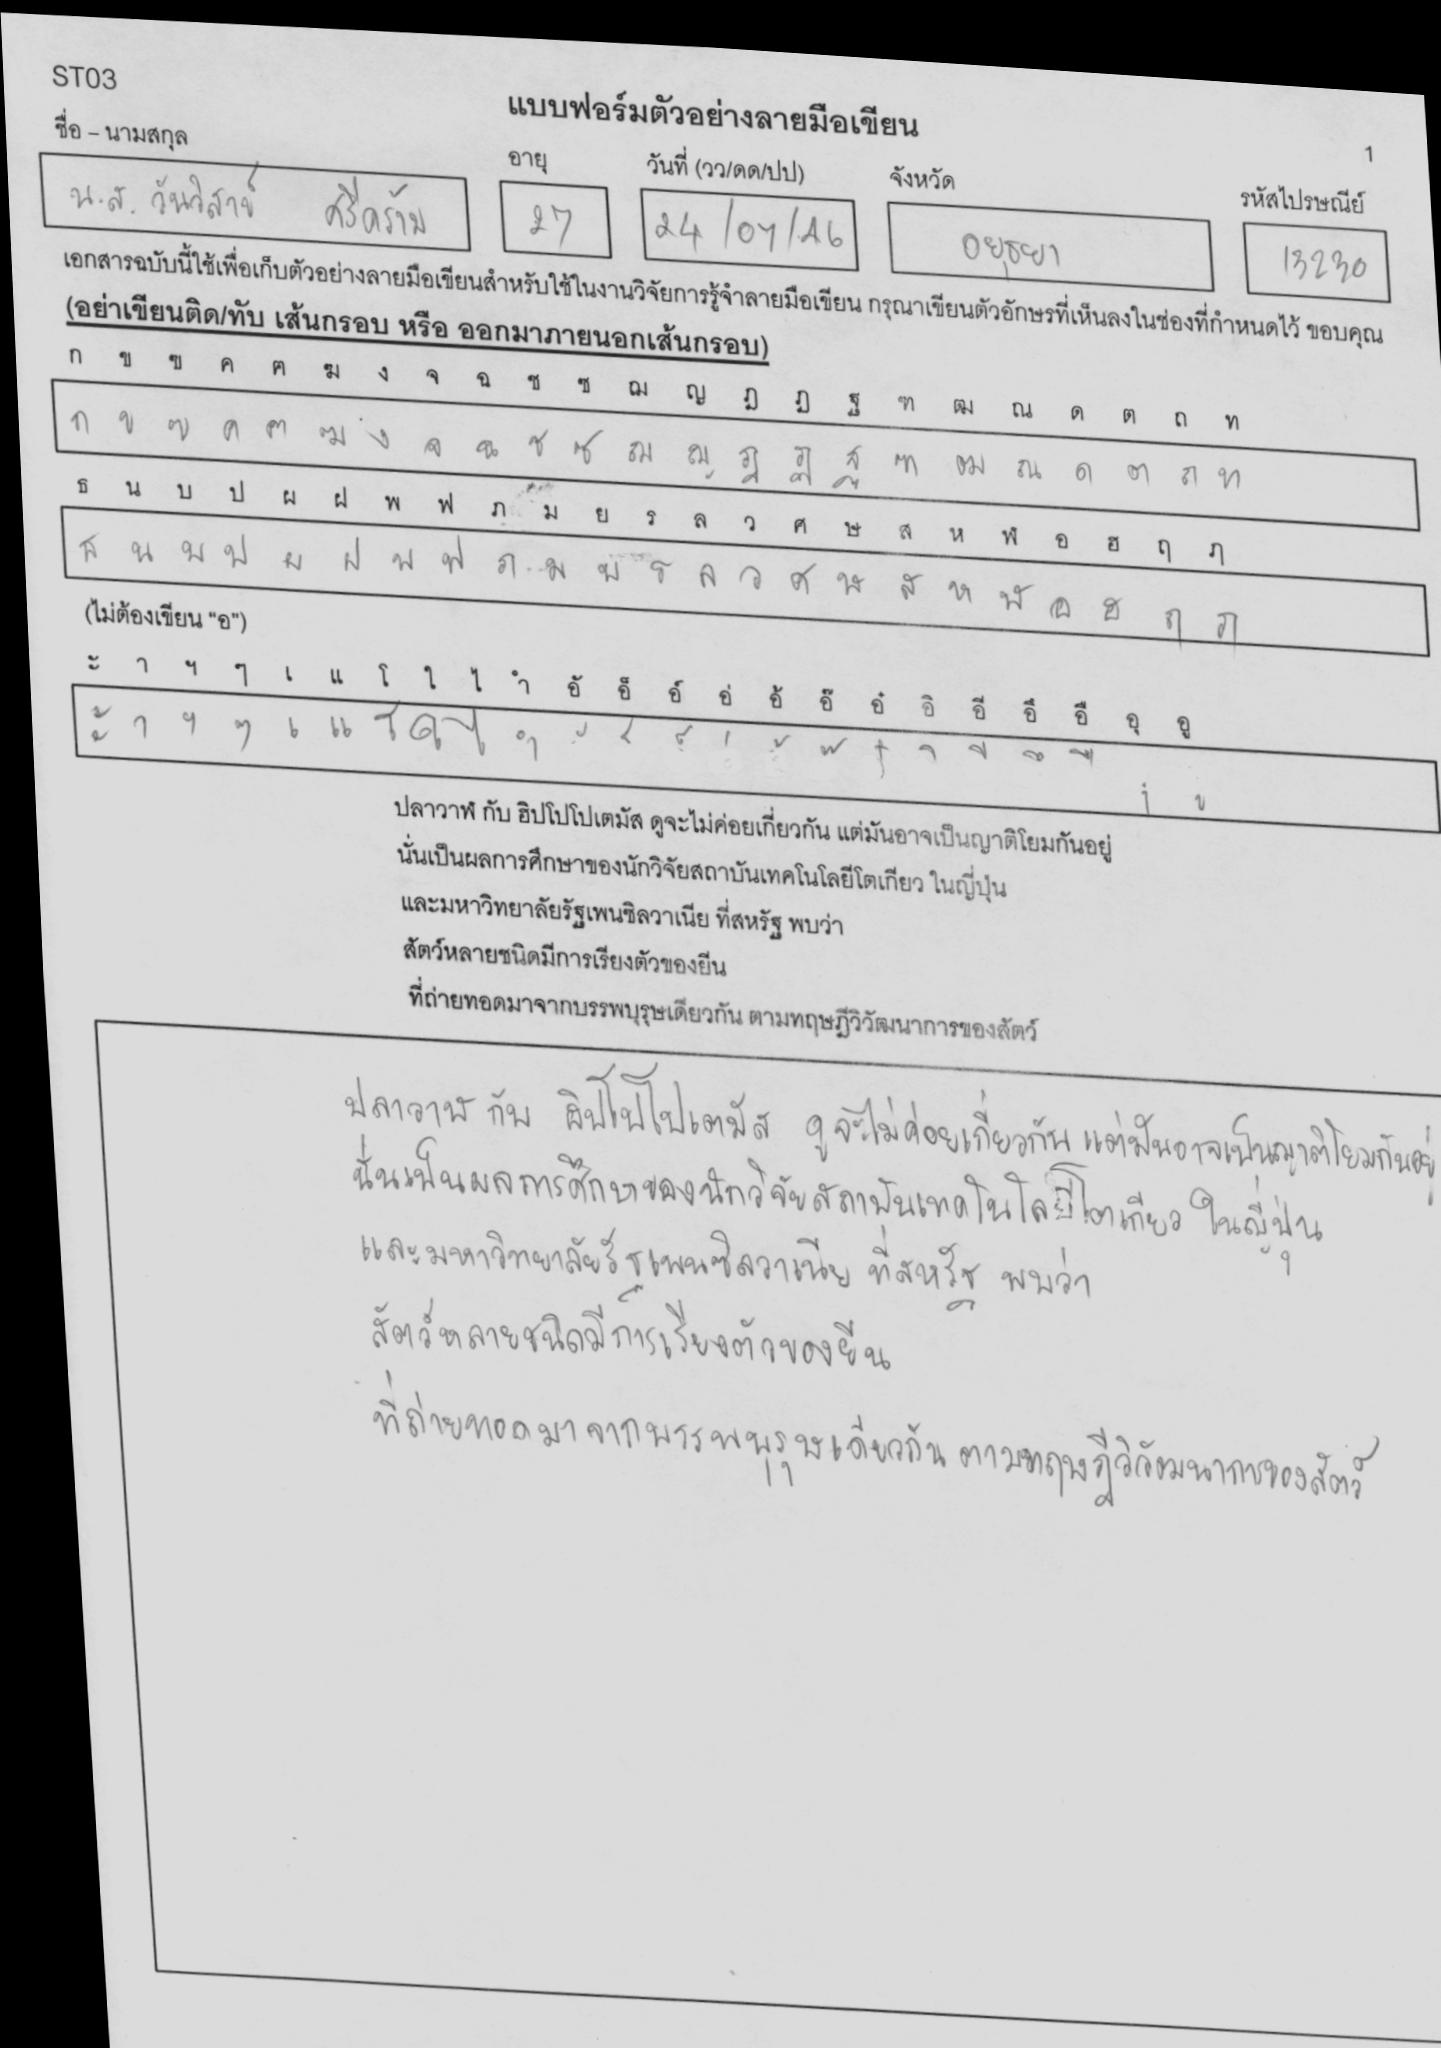 ST03
แบบฟอร์มตัวอย่างลายมือเขียน
1
ชื่อ – นามสกุล อายุ วันที่ (วว/ดด/ปป) จังหวัด รหัสไปรษณีย์
น.ส. วันวิสาข์ ศรีคร้าม 27 24/07/46 อยุธยา 13230
เอกสารฉบับนี้ใช้เพื่อเก็บตัวอย่างลายมือเขียนสำหรับใช้ในงานวิจัยการรู้จำลายมือเขียน กรุณาเขียนตัวอักษรที่เห็นลงในช่องที่กำหนดไว้ ขอบคุณ
(อย่าเขียนติด/ทับ เส้นกรอบ หรือ ออกมาภายนอกเส้นกรอบ)
ก ข ฃ ค ฅ ฆ ง จ ฉ ช ซ ฌ ญ ฎ ฏ ฐ ฑ ฒ ณ ด ต ถ ท
ก ข ฃ ค ฅ ฆ ง จ ฉ ช ซ ฌ ญ ฎ ฏ ฐ ฑ ฒ ณ ด ต ถ ท
ธ น บ ป ผ ฝ พ ฟ ภ ม ย ร ล ว ศ ษ ส ห ฬ อ ฮ ฤ ฦ
ธ น บ ป ผ ฝ พ ฟ ภ ม ย ร ล ว ศ ษ ส ห ฬ อ ฮ ฤ ฦ
(ไม่ต้องเขียน "อ")
ะ า ฯ ๆ เ แ โ ใ ไ ำ อั อ็ อ์ อ่ อ้ อ๊ อ๋ อิ อี อึ อื อุ อู
ะ า ฯ ๆ เ แ โ ใ ไ ำ ั ็ ์ ่ ้ ๊ ๋ ิ ี ึ ื ุ ู
ปลาวาฬ กับ ฮิปโปโปเตมัส ดูจะไม่ค่อยเกี่ยวกัน แต่มันอาจเป็นญาติโยมกันอยู่
นั่นเป็นผลการศึกษาของนักวิจัยสถาบันเทคโนโลยีโตเกียว ในญี่ปุ่น
และมหาวิทยาลัยรัฐเพนซิลวาเนีย ที่สหรัฐ พบว่า
สัตว์หลายชนิดมีการเรียงตัวของยีน
ที่ถ่ายทอดมาจากบรรพบุรุษเดียวกัน ตามทฤษฎีวิวัฒนาการของสัตว์
ปลาวาฬ กับ ฮิปโปโปเตมัส ดูจะไม่ค่อยเกี่ยวกัน แต่มันอาจเป็นญาติโยมกันอยู่
นั่นเป็นผลการศึกษาของนักวิจัยสถาบันเทคโนโลยีโตเกียว ในญี่ปุ่น
และมหาวิทยาลัยรัฐเพนซิลวาเนีย ที่สหรัฐ พบว่า
สัตว์หลายชนิดมีการเรียงตัวของยีน
ที่ถ่ายทอดมาจากบรรพบุรุษเดียวกัน ตามทฤษฎีวิวัฒนาการของสัตว์